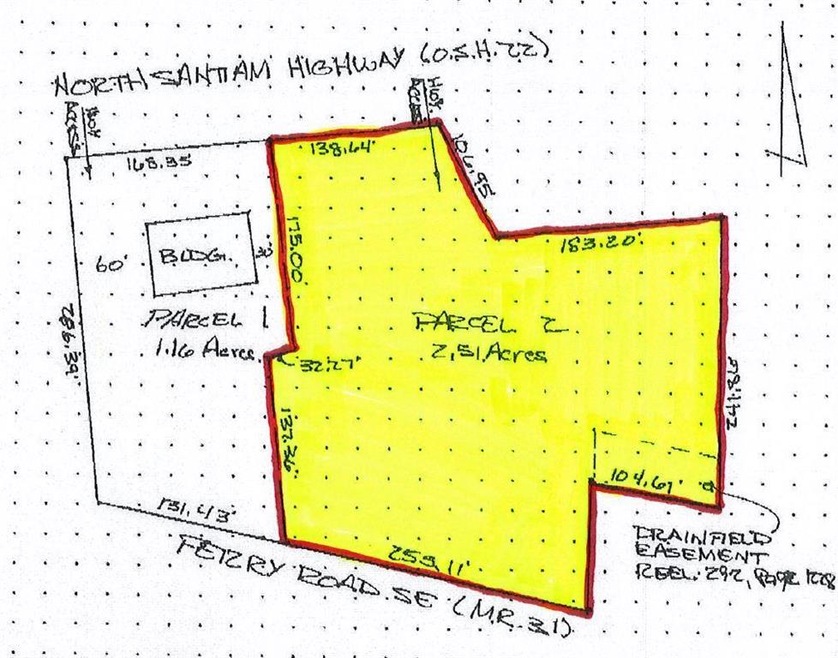 NORTH SANTIAM HIGHWAY (O.S.H. 22)
HWY. ACCESS
HWY. ACCESS
168.35
138.64'
106.95
175.00'
183.20'
60'
BLDG.
30'
PARCEL 1
1.16 Acres
PARCEL 2
2.51 Acres
286.39'
32.27'
137.36'
104.67'
131.43'
DRAINFIELD
EASEMENT
REEL 292, Page 1228
FERRY ROAD SE (M.R. 31)